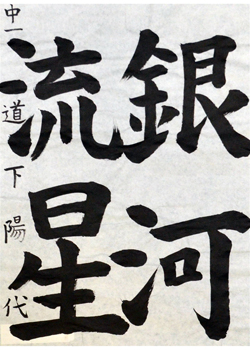 銀河
流星
中一 道下陽代